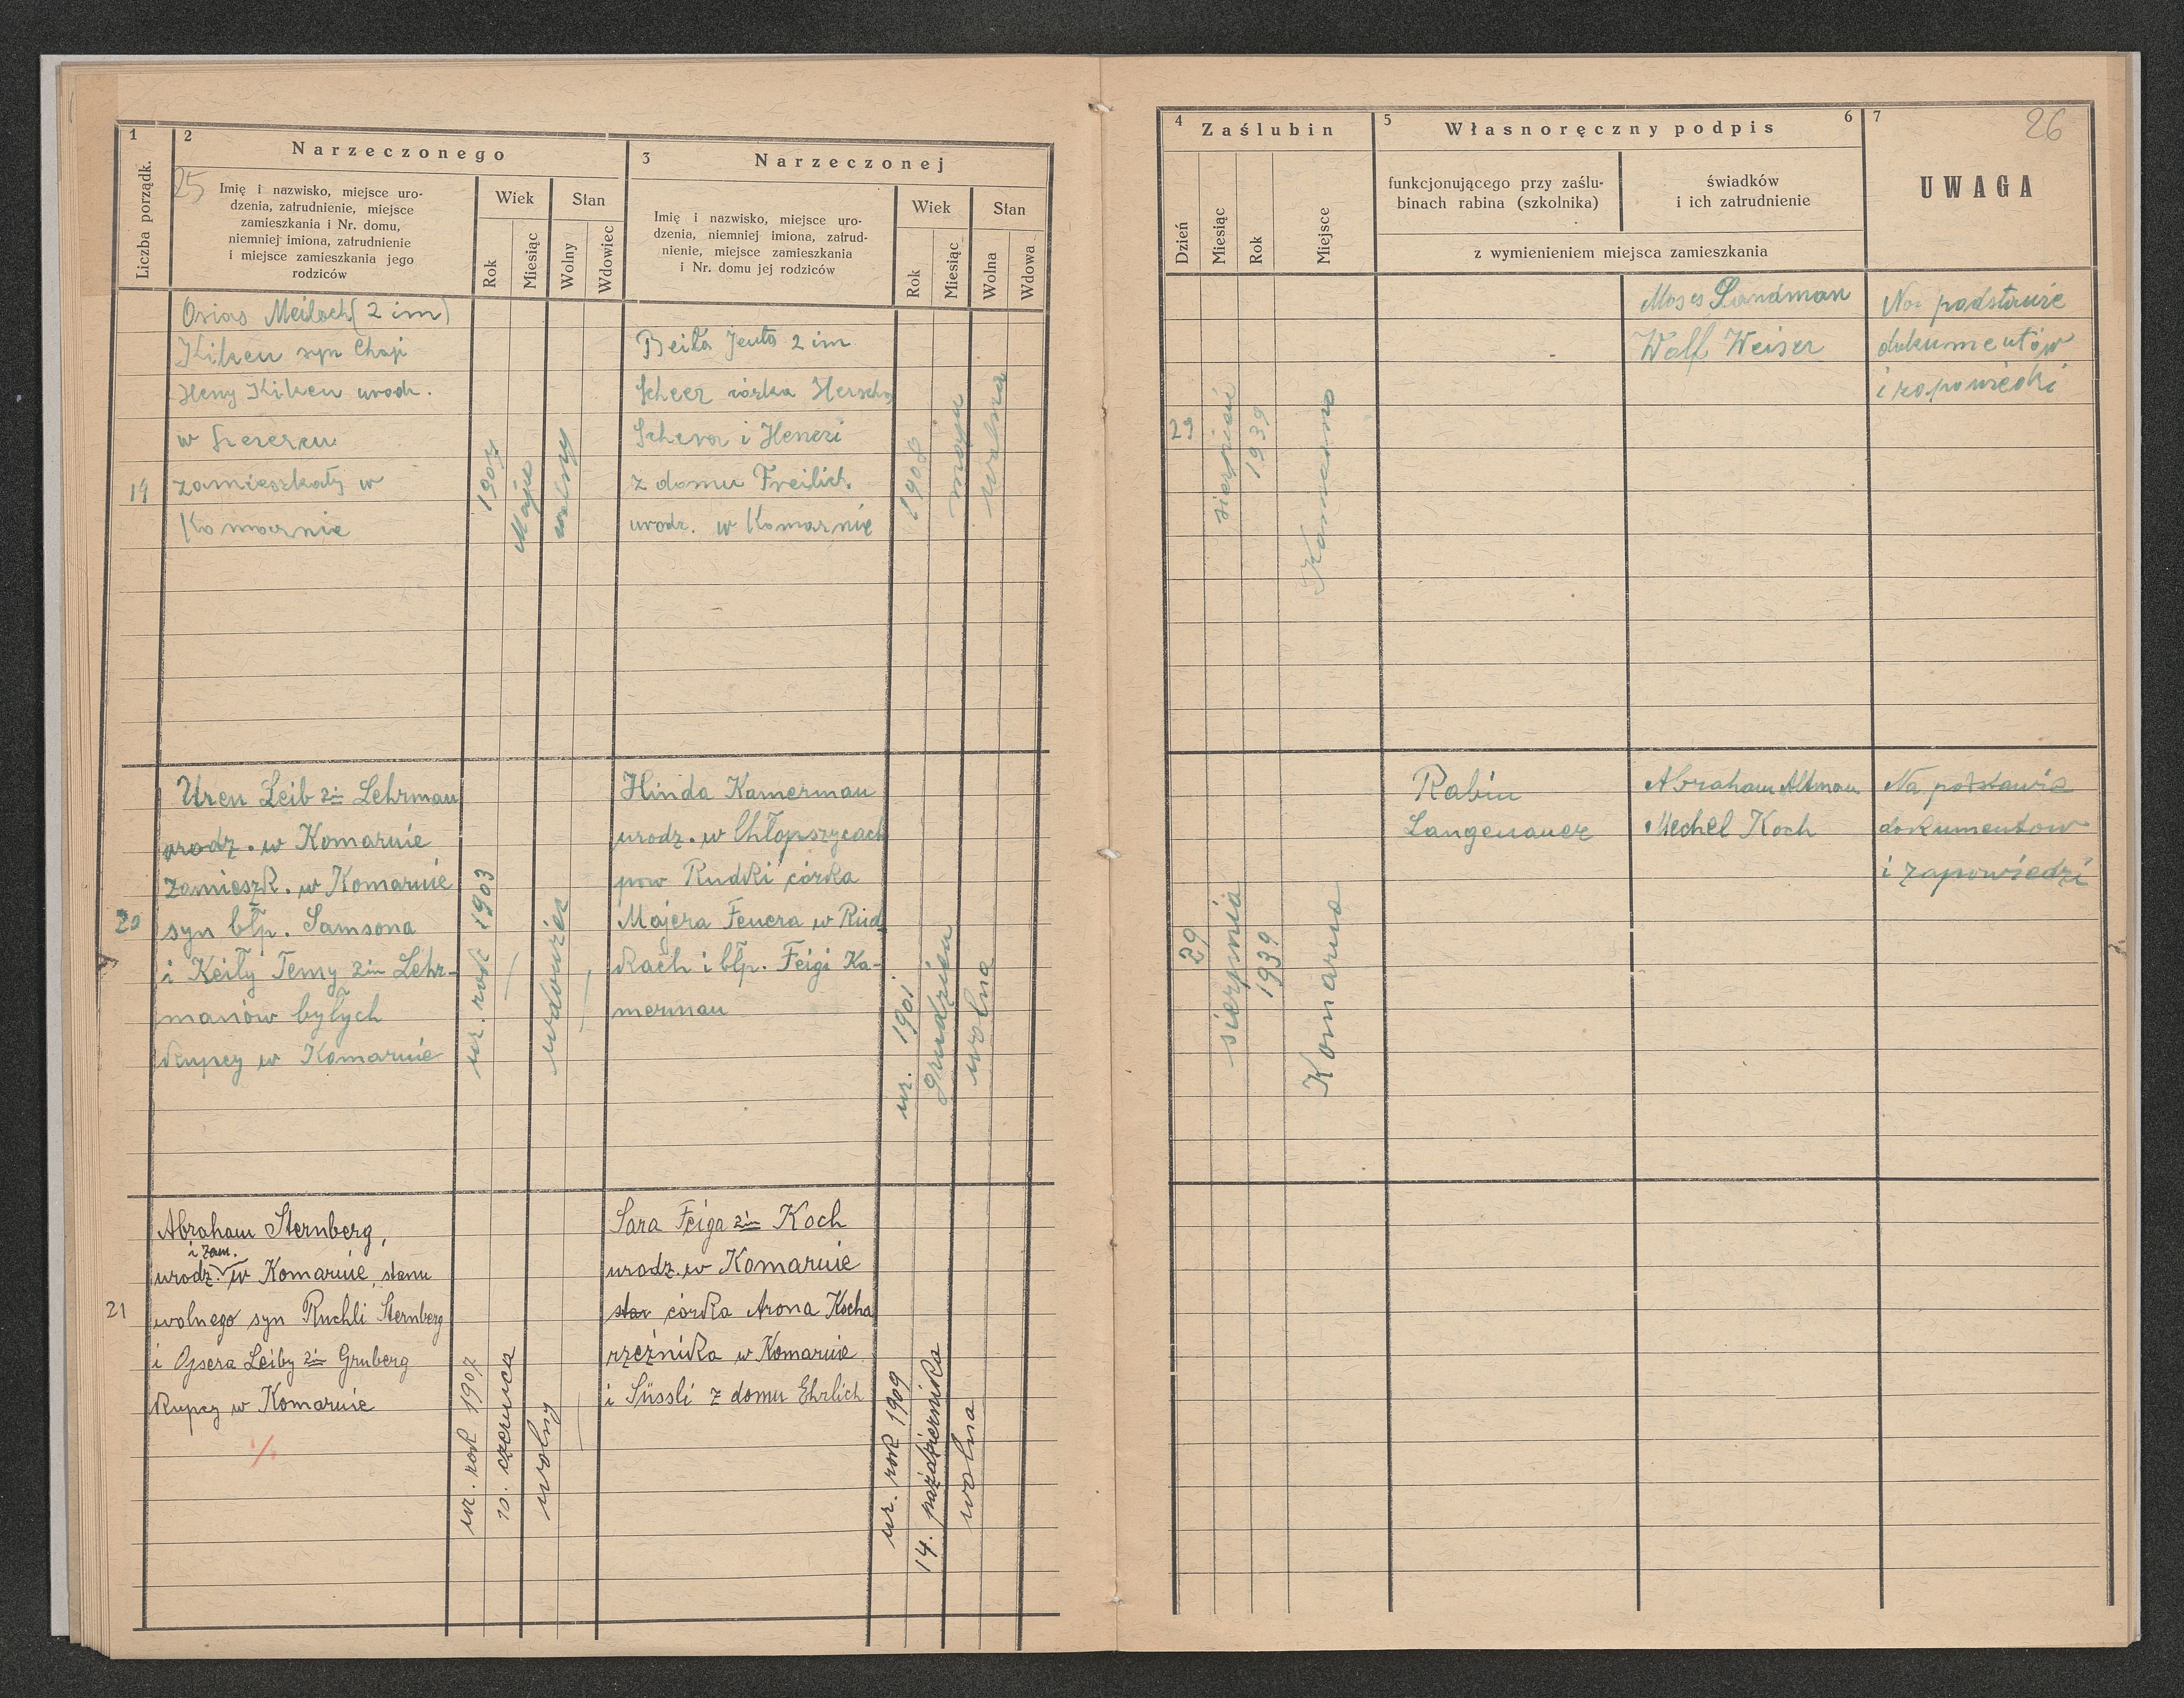 1
2
Narzeczonego
25
Liczba porządk.
Imię i nazwisko, miejsce uro-
dzenia, zatrudnienie, miejsce
zamieszkania i Nr. domu,
niemniej imiona, zatrudnienie
i miejsce zamieszkania jego
rodziców
Wiek
Rok
Miesiąc
Stan
Wolny
Wdowiec
3
Narzeczonej
Imię i nazwisko, miejsce uro-
dzenia, niemniej imiona, zatrud-
nienie, miejsce zamieszkania
i Nr. domu jej rodziców
Wiek
Rok
Miesiąc
Stan
Wolna
Wdowa
4
Zaślubin
Dzień
Miesiąc
Rok
Miejsce
5
Własnoręczny podpis
6
funkcjonującego przy zaślu-
binach rabina (szkolnika)
świadków
i ich zatrudnienie
z wymienieniem miejsca zamieszkania
7
26
UWAGA
19
Osias Meiloch (2 im)
Kiken syn Chaji
Heny Kiken urodz.
w
zamieszkały w
Komarnie
Maju
wolny
Beila Jenta 2 im
Scheer córka Herscha
Schera i Henczi
z domu Freilich.
urodz. w Komarnie
1908
maju
wolna
29
sierpień
1939
Komarno
Moses Landman
Wolf Weiser
Na podstawie
dokumentów
i zapowiedzi
20
Uren Leib 2im Lehrman
urodz. w Komarnie
zamieszk. w Komarnie
syn błp. Samsona
i Keiły Temy 2im Lehr-
manów byłych
kupcy w Komarnie
ur. rok 1903
wdowiec
Hinda Kamerman
urodz. w Chłopszycach
pow Rudki córka
Majera Feuera w Rud
kach i błp. Feigi Ka-
merman
ur. 1901.
grudzień
wolna
29
sierpnia
1939
Komarno
Rabin
Langenauer
Abraham Altman
Mechel Koch
Na podstawie
dokumentow
i zapowiedzi
21
Abraham Sternberg,
i zam.
urodz. w Komarnie, stanu
wolnego syn Ruchli Sternberg
i Ojsera Leiby 2im Gruberg
kupcy w Komarnie
ur. rok 1907
10. czerwca
wolny
Sara Feiga 2im Koch
urodz. w Komarnie
stan córka Arona Kocha
rzeźnika w Komarnie
i Süssli z domu Ehrlich
ur. rok 1909
14. października
wolna